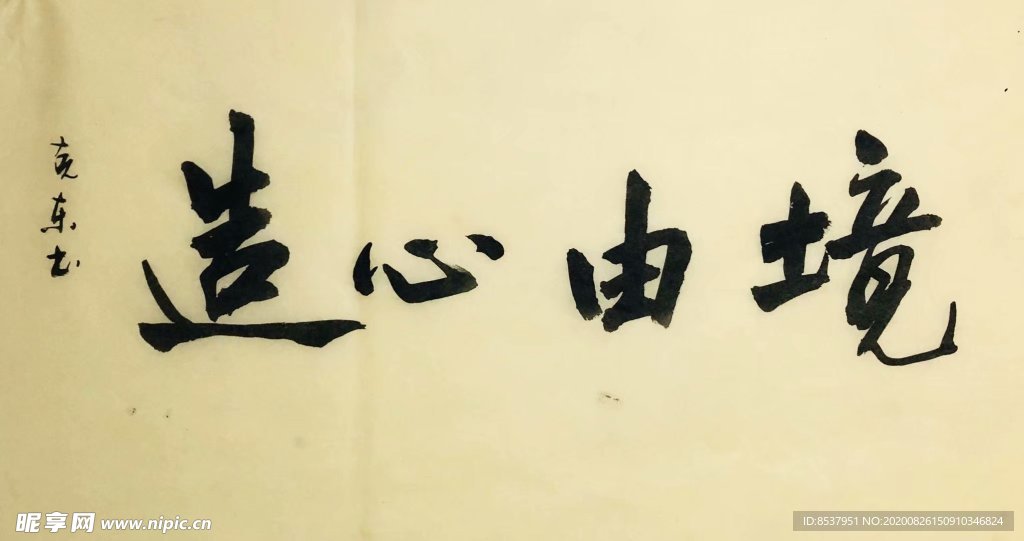 境由心造
克东书
昵享网 www.nipic.cn
ID:8537951 NO:20200826150910346824